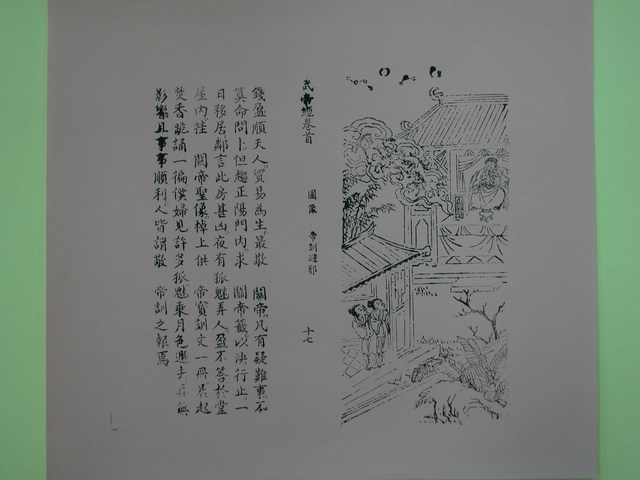 武帝經卷首 圖像 帝訓避邪 十七
錢盈順天人貿易為生最敬 關帝凡有疑難事不
算命問卜但趨正陽門內求 關帝籤以決行止一
日移居鄰言此房甚凶夜有狐魅弄人盈不答於堂
屋內挂 關帝聖像棹上供 帝寶訓文一冊晨起
焚香跪誦一徧僕婦見許多狐魅乘月色遯去再無
影響且事事順利人皆謂敬 帝訓之報焉